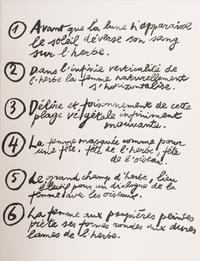 1 Avant que la lune n'apparaisse
le soleil déverse son sang
sur l'herbe.
2 Dans l'infinie verticalité de
l'herbe la femme naturellement
s'horizontalise.
3 Délire et foisonnement de cette
plage végétale infiniment
mouvante.
4 La femme masquée comme pour
une fête, fête de l'herbe fête
de l'oiseau.
5 Le grand champ d'herbe, lieu
pour un dialogue de la
femme avec les oiseaux.
6 La femme aux paupières peintes
prête ses formes rondes aux dures
lames de l'herbe.